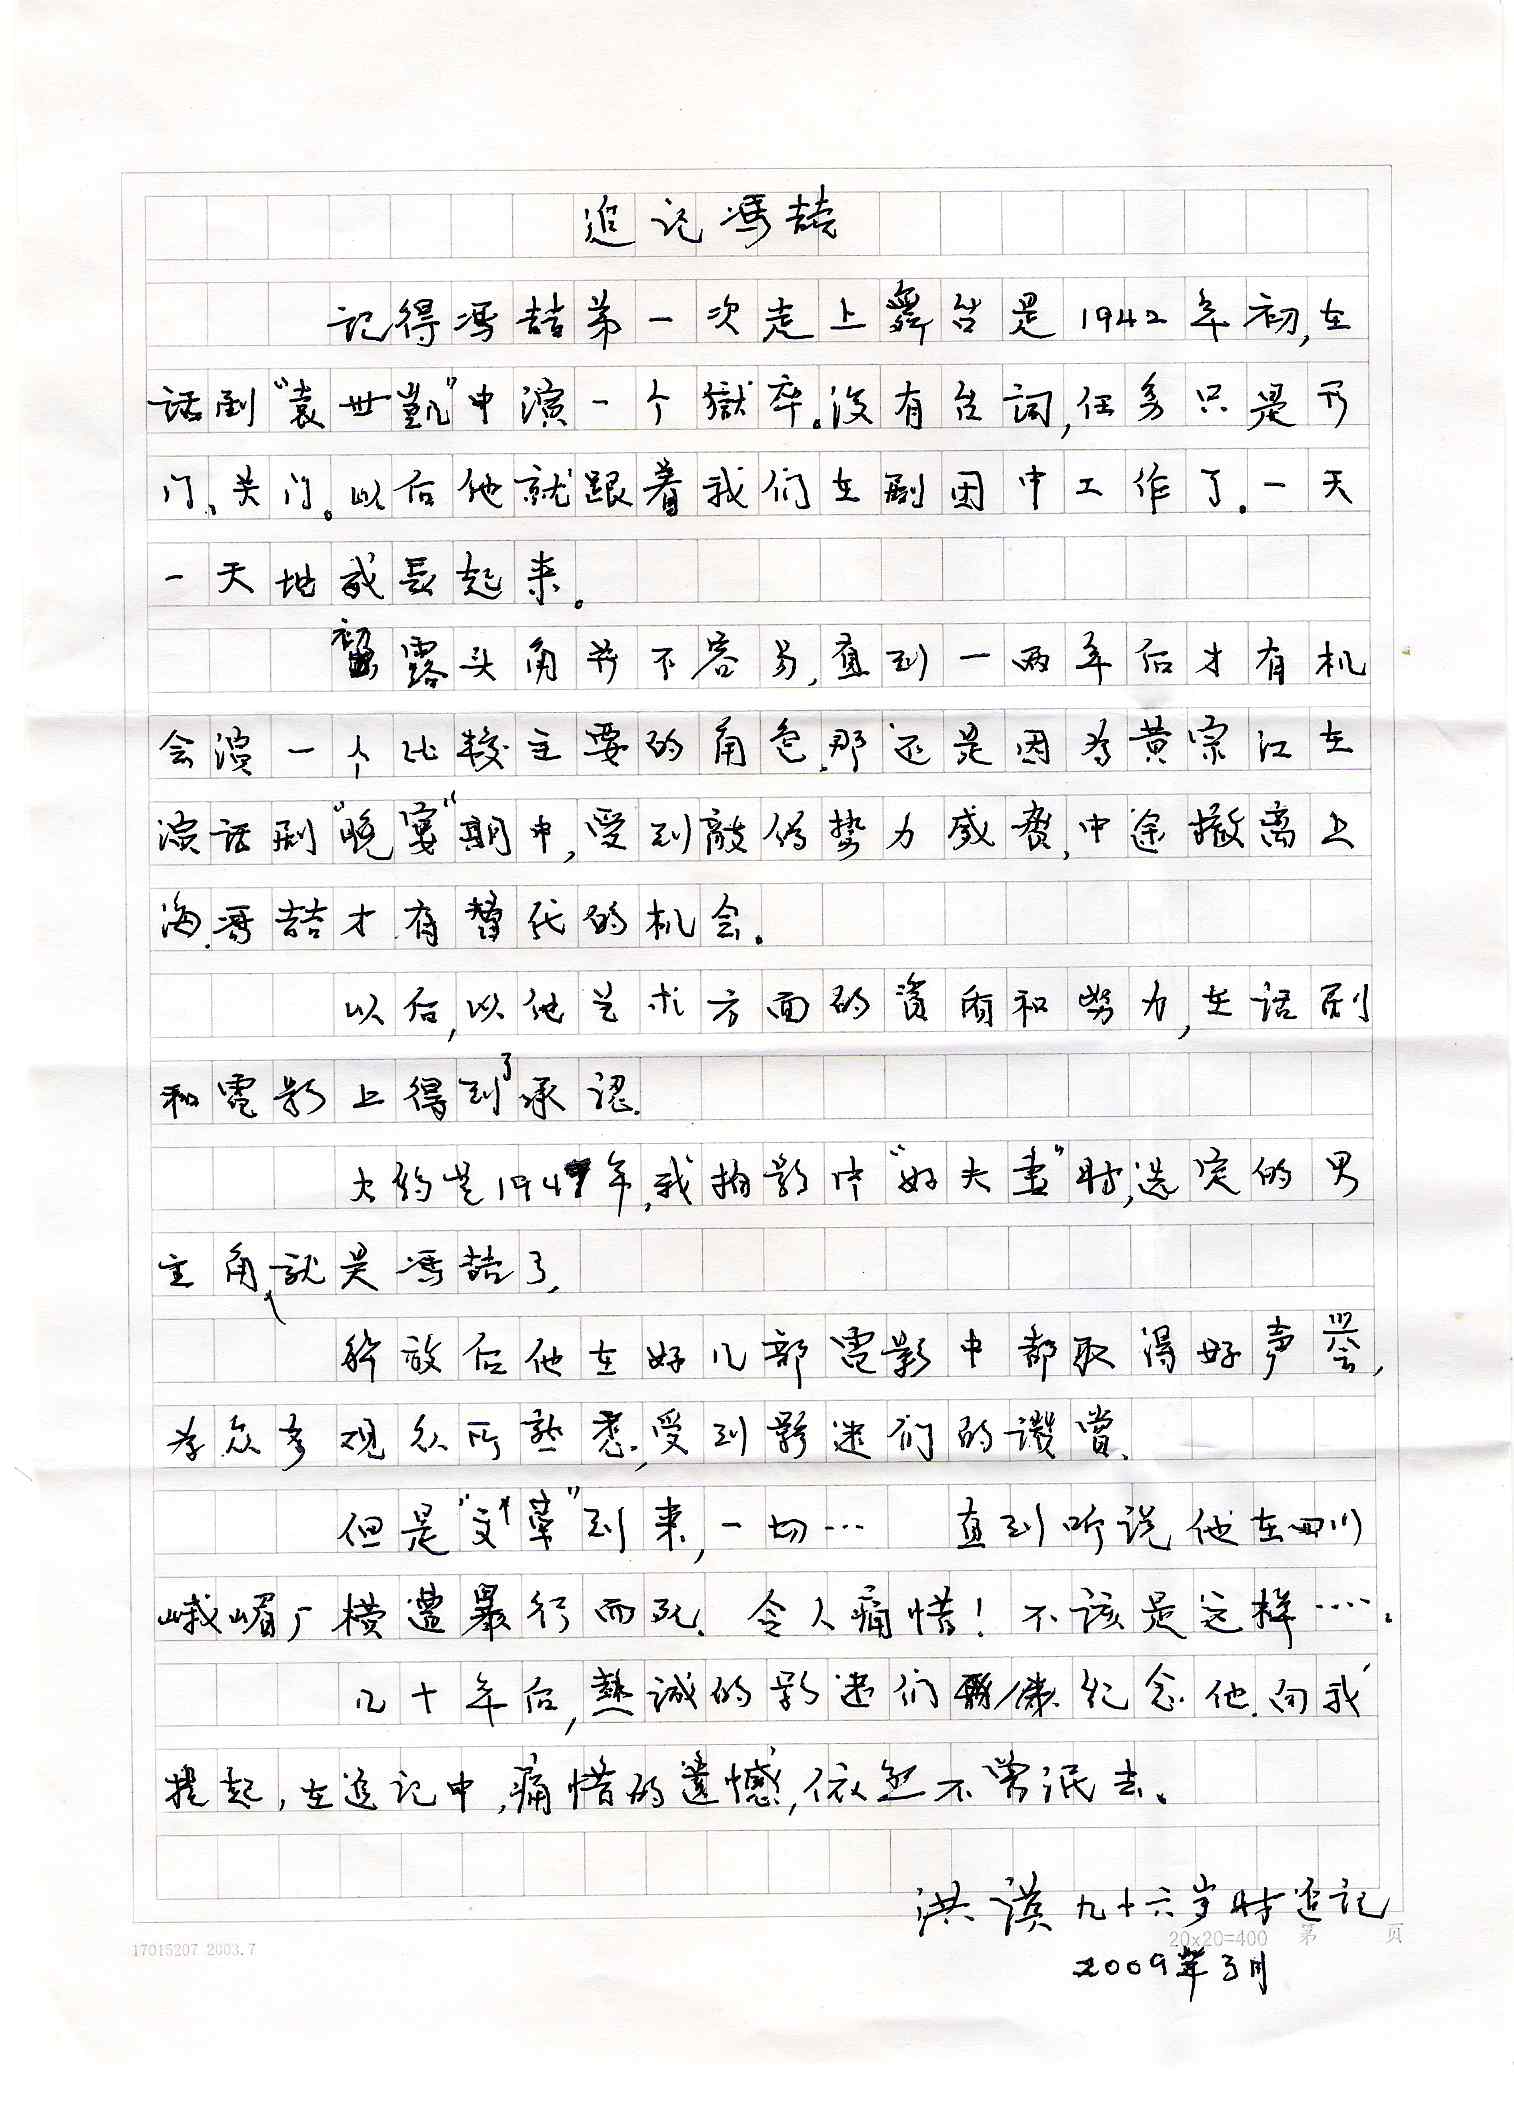 追记冯喆
记得冯喆第一次走上舞台是1942年初,在
话剧"袁世凱"中演一个獄卒。没有台词,任务只是开
门、关门。以后他就跟着我们在剧团中工作了.一天
一天地成長起来。
初露头角并不容易,直到一两年后才有机
会演一个比较主要的角色.那还是因为黄宗江在
演话剧"晚宴"期中,受到敵伪势力威胁,中途撤离上
海.冯喆才有替代的机会。
以后,以他艺术方面的資质和努力,在话剧
和電影上得到了承認.
大约是194 年,我拍影片"好夫妻"時,选定的男
主角,就是冯喆了,
解放后他在好几部電影中都取得好声誉,
为众多观众所熟悉,受到影迷们的讚賞.
但是"文革"到来,一切… 直到听说他在四川
峨嵋厂横遭暴行而死. 令人痛惜! 不该是这样…..
几十年后,熱誠的影迷们 纪念他.向我
提起,在追记中,痛惜的遗憾,依然不曾泯去。
洪谟九十六岁時追记
2009年3月
17015207 2003.7
20×20=400 第 页